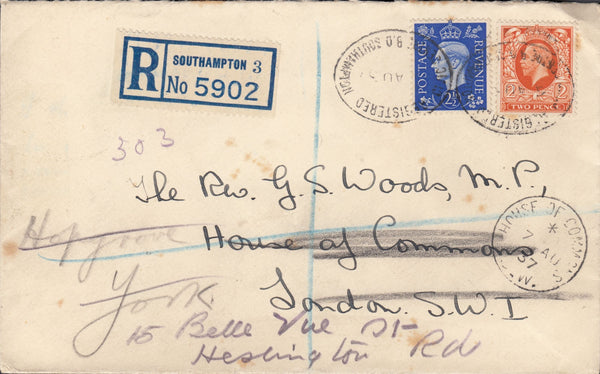 R SOUTHAMPTON 3
No 5902
REGISTERED
B.O. SOUTHAMPTON
AU 37
POSTAGE
REVENUE
2½
2 2
TWO PENCE
303
The Rev. G. S. Woods, M.P.,
House of Commons
London. S.W.1
HOUSE OF COMMONS
*
7 AU
37
S.W.
York
15 Belle Vue St
Heslington Rd